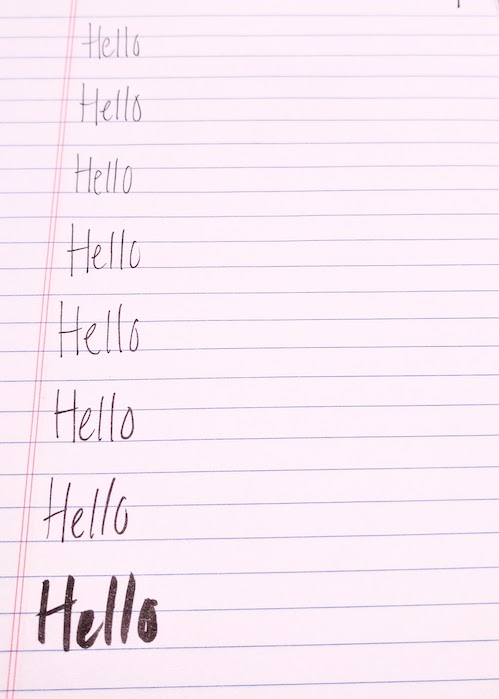 Hello
Hello
Hello
Hello
Hello
Hello
Hello
Hello